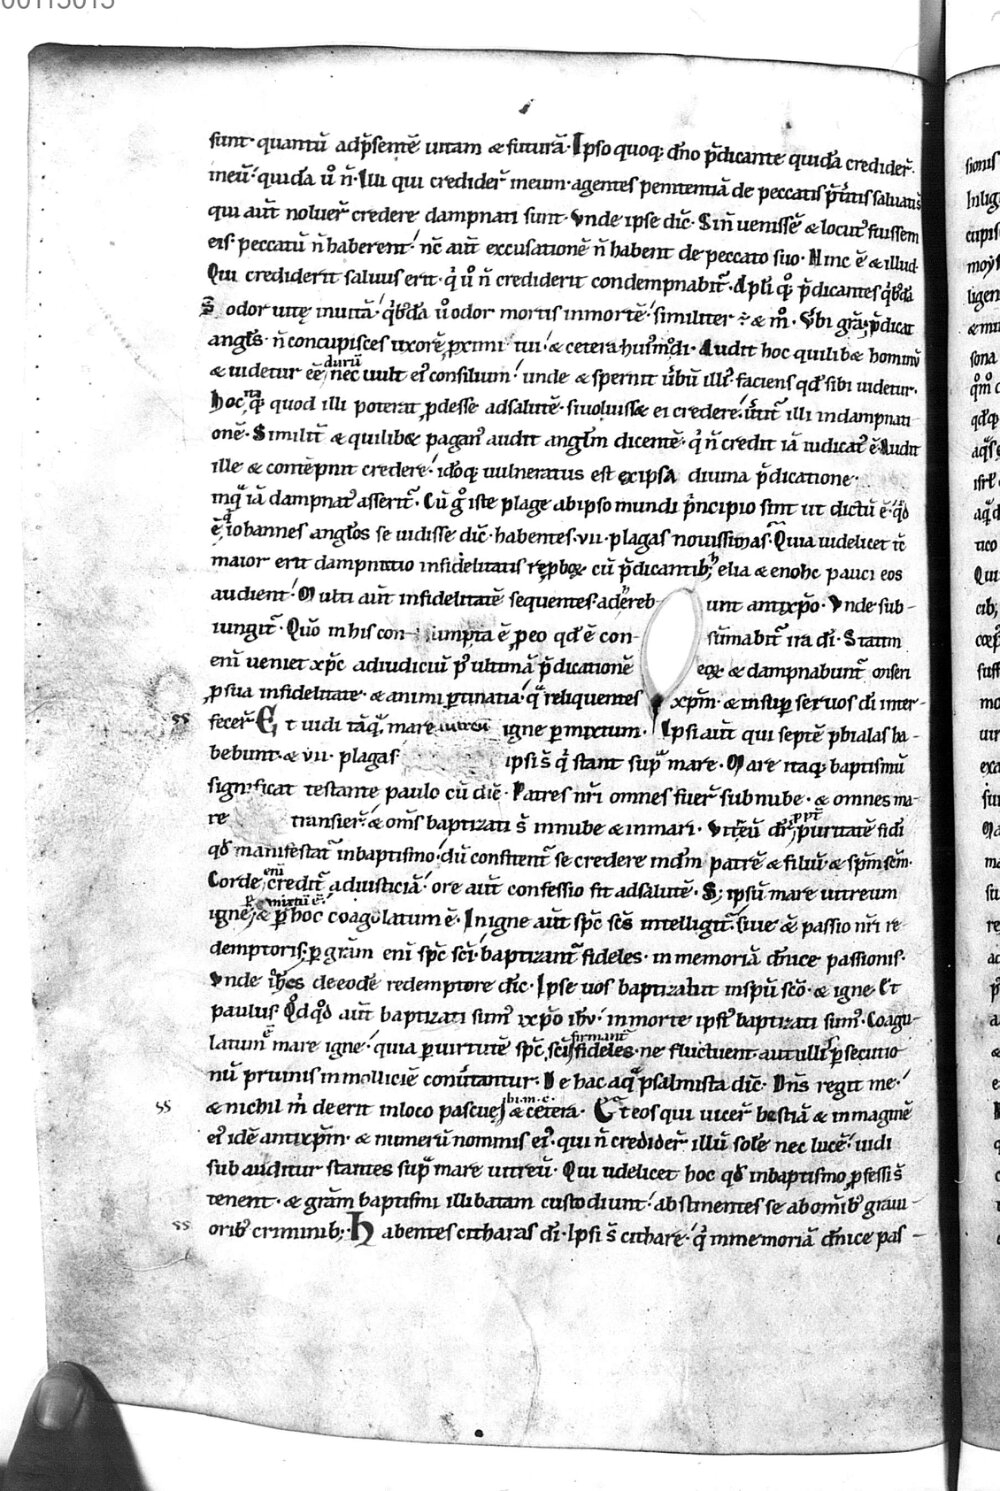 sunt quantū adp̄sentē uitam & futurā. Ipso quoq; dn̄o p̄dicante quidā credider̄
ineū. quidā ū n̄. Illi qui credider̄ ineum. agentes penitentiā de peccatis saluati s̄
qui aūt noluer̄ credere dampnati sunt. Vnde ipse dic̄. Si n̄ uenissē & locut' fuissem
eis. peccatū n̄ haberent. nc̄ aūt excusationē n̄ habent de peccato suo. Hinc ē & illud.
Qui crediderit saluus erit. q̇ ū n̄ crediderit condempnabit̄. Apl̄i p̄dicantes q̇bdā
s̄ odor uitę inuitā. q̇bdā ū odor mortis inmortē. similiter & m̊. Vbi gr̄a p̄dicat
angl̄s. n̄ concupisces uxorē pximi tui. & cetera hui'm̊di. Audit hoc quilib& hominū
& uidetur eē durū nec uult ei' consilium. unde & spernit ūbū illi'. faciens qd̄ sibi uidetur.
Hoc quod illi poterat pdesse adsalutē. siuoluiss& ei credere. illi indampnati
onē. Similit̄ & quilib& pagan' audit angl̄m dicentē. q̇ n̄ credit iā iudicat' ē. Audit
ille & contēpnit credere. idoq; uulneratus est exipsa diuina p̄dicatione.
iā dampnat' asserit̄. Cū g̊ iste plage abipso mundi p̄ncipio sint ut dictū ē. qd̄
ē iohannes angl̄os se uidisse dic̄. habentes .vii. plagas nouissimas. Quia uidelicet tc̄
maior erit dampnatio infidelitatis repbox cū p̄dicantib; helia & enohc pauci eos
audient. Multi aūt infidelitatē sequentes adhereb unt antixp̄o. Vnde sub
iungit̄. Qūo in his con umpta ē peo qd̄ ē con sūmabit̄ ira dī. Statim
enī ueniet xp̄c adiudiciū p' ultimā p̄dicationē & dampnabunt̄
psua infidelitate. & animi ptinatia. reliquentes xp̄m. & insup seruos dī inter
fecer̄. Et uidi tāq̇ mare uitreū igne pmixtum. Ipsi aūt qui septē phialas ha
bebunt. & vii. plagas ipsi s̄ q̇ stant sup̄ mare. Mare itaq; baptismū
significat testante paulo cū dic̄. Patres nr̄i omnes fuer̄ sub nube. & omnes ma
re transier̄. & om̄s baptizati s̄ innube & inmari. Vitreū dr̄ ppt̄ puritatē fidī
qd̄ manifestat̄ inbaptismo. dū confitent̄ se credere indm̄ patrē & filiū & sp̄m sc̄m.
Corde enī credit̄ adiusticiā. ore aūt confessio fit adsalutē. S; ipsū mare uitreum
igne pmixtū ē. & p hoc coagulatum ē. Inigne aūt sp̄c sc̄s intelligit̄. siue & passio nr̄i re
demptoris. p gr̄am enī sp̄c sc̄i baptizant̄ fideles. in memoriā dn̄ice passionis.
Vnde ioh̄es deeodē redemptore dic̄. Ipse uos baptizabit insp̄u sc̄o. & igne. Et
paulus. Qd̄qd̄ aūt baptizati sum' ixp̄o ihv̄. inmorte ipsi' baptizati sum'. Coagu
latum ē mare igne. quia puirtutē sp̄c sc̄i firmant̄ fideles. ne fluctuent. aut ulli' psecutio
nū pruinis in molliciē conūtantur. De hac aq̄ psalmista dic̄. Dn̄s regit me.
& nichil m̄ deerit inloco pascue ibi. m. c. & cetera. Et eos qui uicer̄ bestiā & inmaginē
ei' idē antixp̄m. & numerū nominis ei'. qui n̄ credider̄ illū sole nec lucē. uidi
sub auditur stantes sup̄ mare uitreū. Qui uidelicet hoc qd̄ inbaptismo pfessi s̄
tenent. & gr̄am baptismi illibatam custodiunt. abstinentes se abom̄ib' graui
orib' criminib;. Habentes citharas dī. Ipsi s̄ cithare. q̇ inmemoriā dn̄ice pas